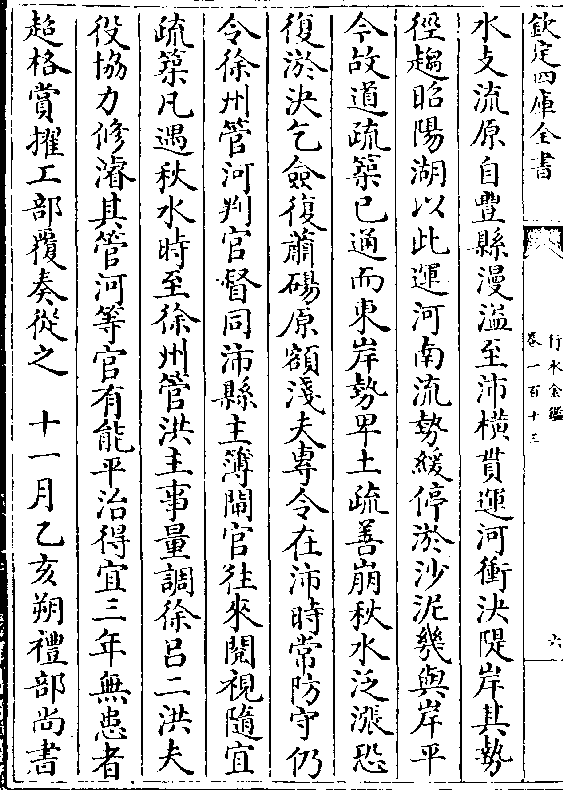 欽定四庫全書
行水金鑑
卷一百十三
六
水支流原自豐縣漫溢至沛橫貫運河衝決隄岸其勢
徑趨昭陽湖以此運河南流勢緩停淤沙泥幾與岸平
今故道疏築已通而東岸勢卑土疏善崩秋水泛漲恐
復淤決乞僉復蕭碭原額淺夫專令在沛時常防守仍
令徐州管河判官督同沛縣主簿閘官往來閱視隨宜
疏築凡遇秋水時至徐州管洪主事量調徐吕二洪夫
役協力修濬其管河等官有能平治得宜三年無患者
超格賞擢工部覆奏從之　十一月乙亥朔禮部尚書